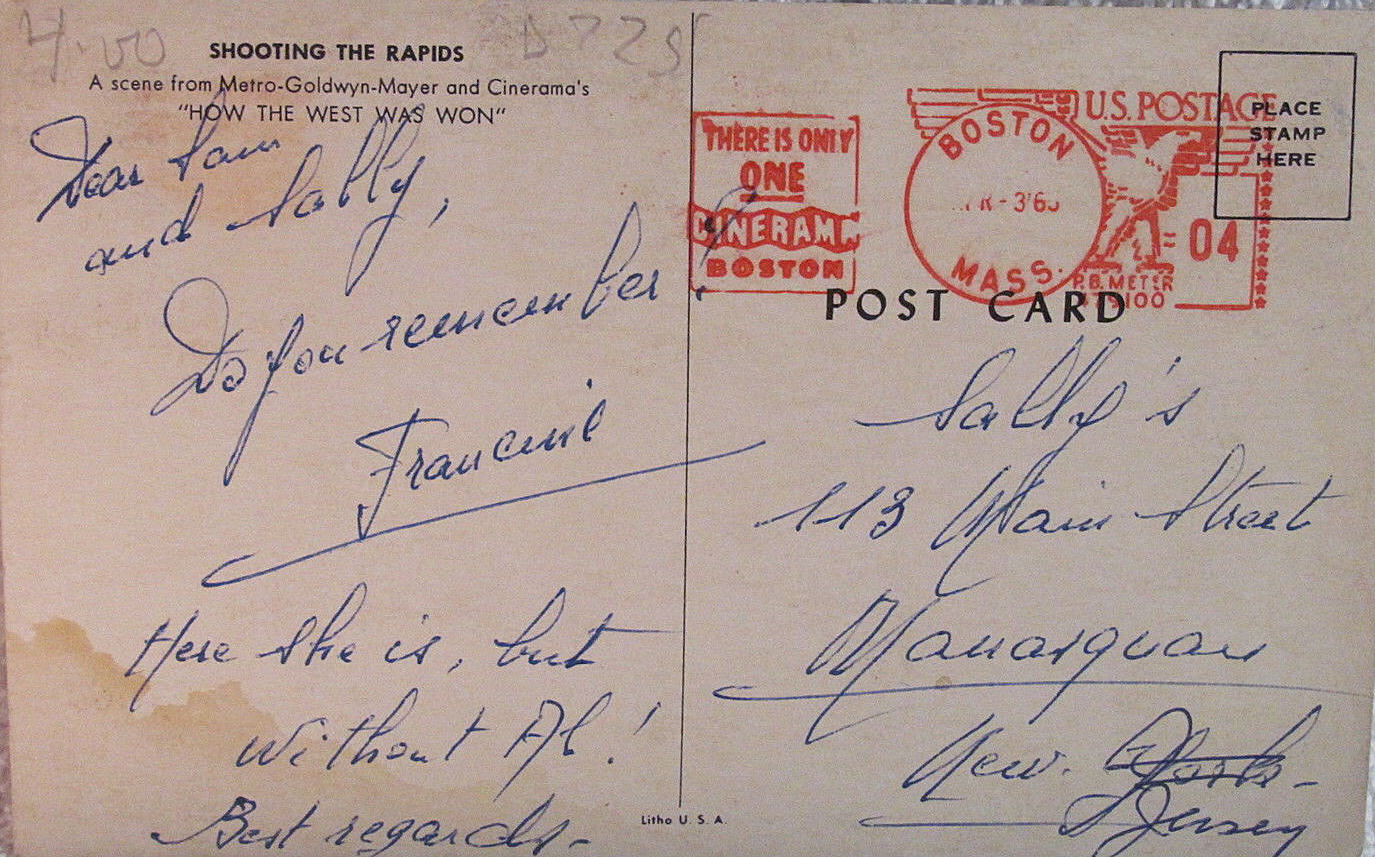 4.00
SHOOTING THE RAPIDS
A scene from Metro-Goldwyn-Mayer and Cinerama's
"HOW THE WEST WAS WON"
Dear Sam
and Sally,
Do you remember ?
Francine
Here she is, but
without Al!
Best regards-
Litho U. S. A.
THERE IS ONLY
ONE
CINERAMA
BOSTON
BOSTON
MASS.
U.S. POSTAGE
04
P.B. METER
PLACE
STAMP
HERE
POST CARD
Sally's
113 Main Street
Manasquan
New. York-
Jersey